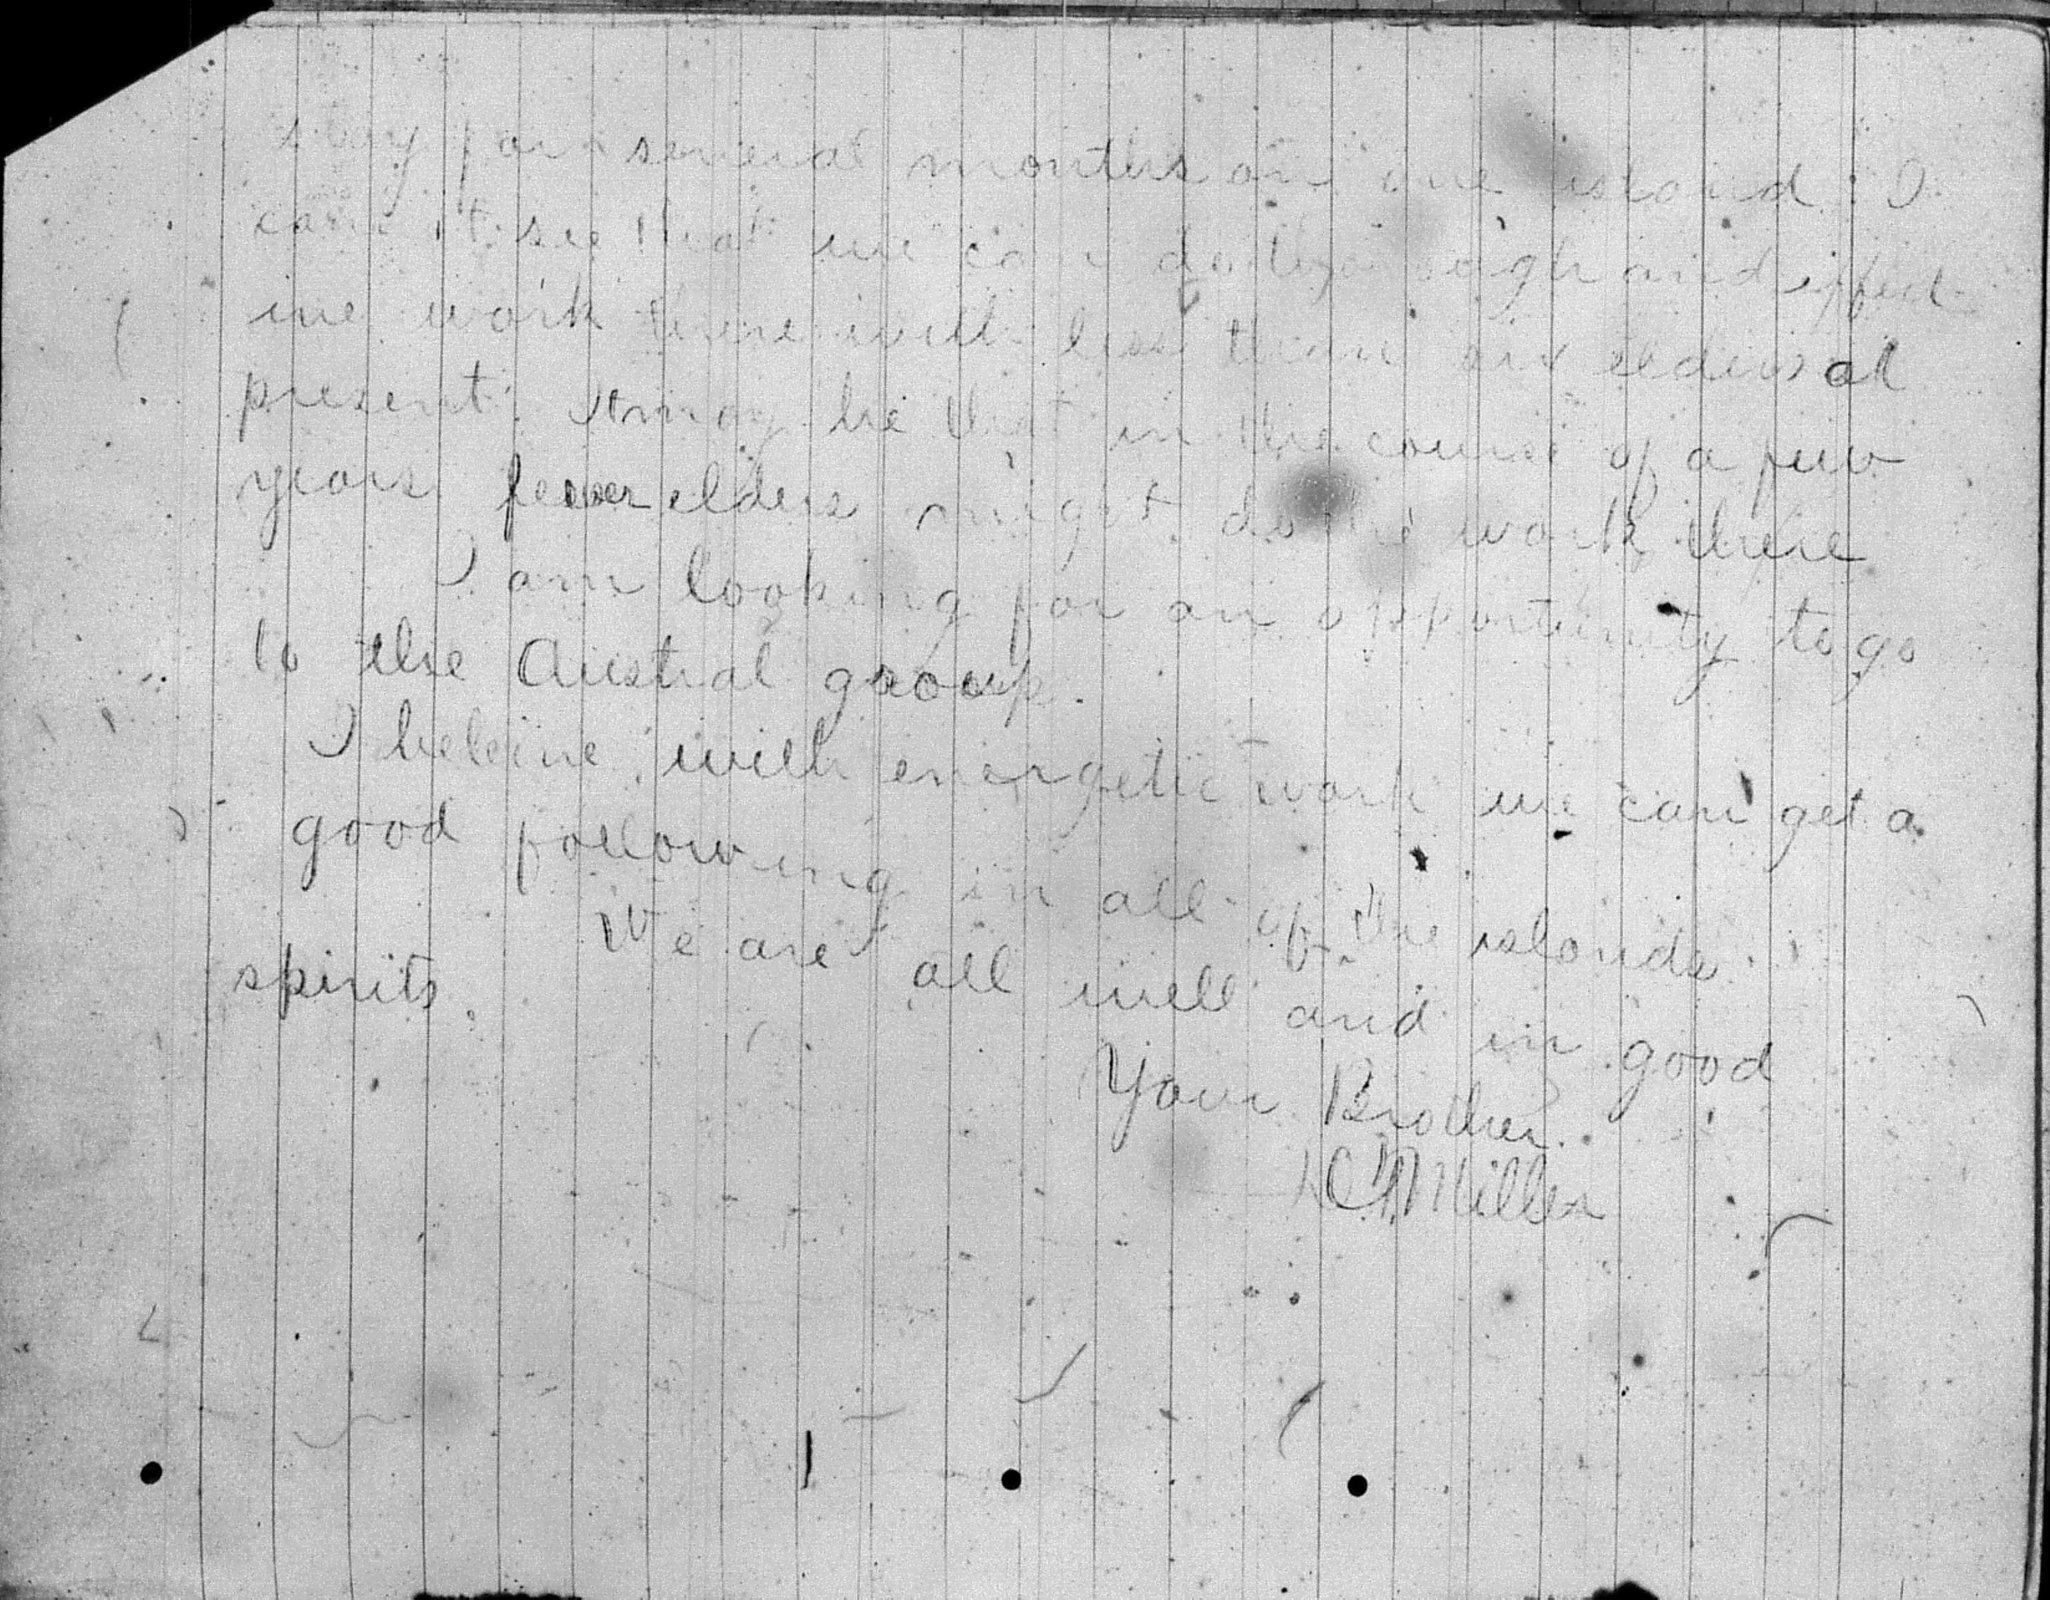 stay for several months on one island. I
can't see that we can do thorough and effect
ive work there with less than six elders at
present. It may be that in the course of a few
years fewer elders might do the work there
I am looking for an opportunity to go
to the Austral group.
I beleive with energetic work we can get a
good following in all of the islands.
We are all well and in good
spirits.
Your Brother.
Miller